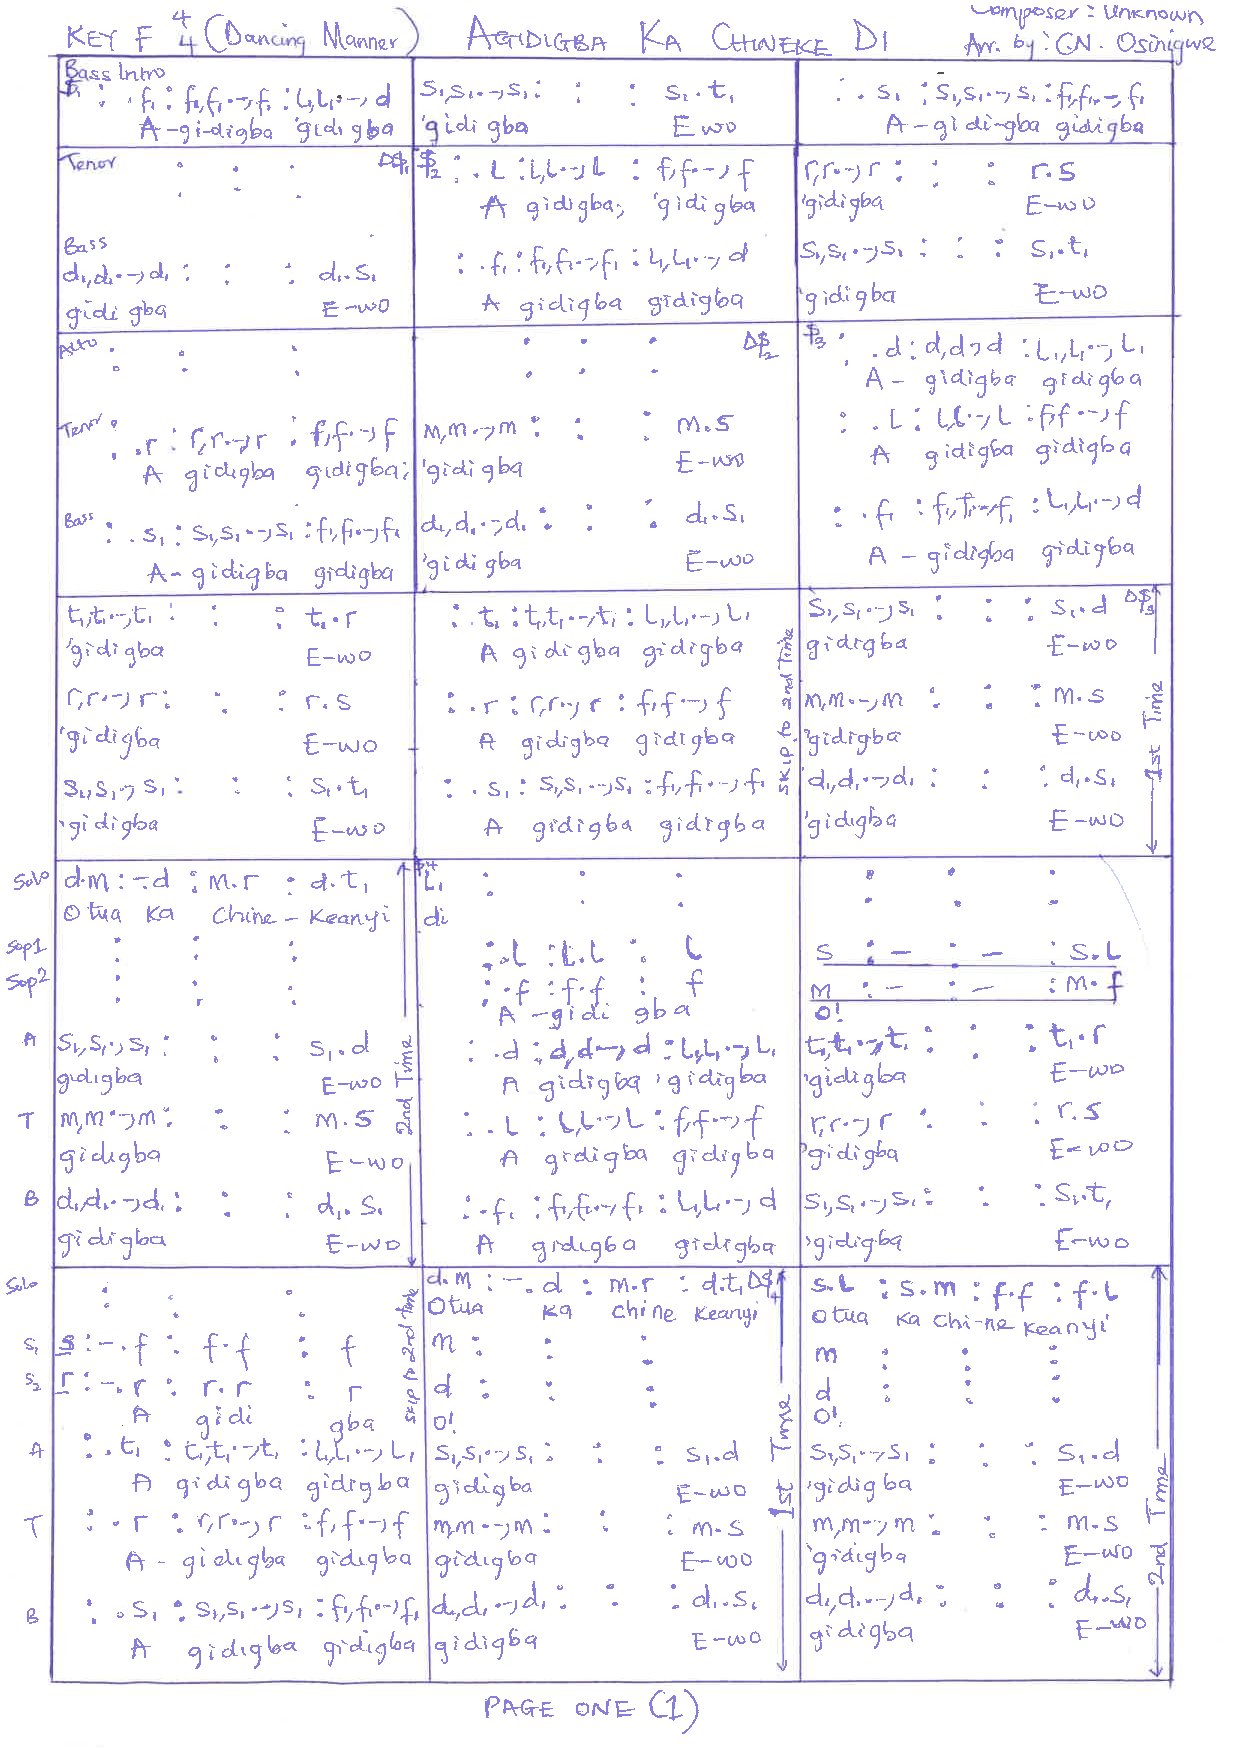 KEY F 4/4 (Dancing Manner) AGIDIGBA KA CHINEKE DI
Composer: Unknown
Arr. by: GN. Osinigwe
Bass Intro
: .f₁ : f₁,f₁.-,f₁ : l₁,l₁.-,d | s₁,s₁.-,s₁ : : : s₁.t₁ | : .s₁ : s₁,s₁.-,s₁ : f₁,f₁.-,f₁
A-gi-digba 'gidi gba | 'gidi gba E wo | A-gidi-gba gidigba
Tenor : : : D$₁ | $₂ : .l : l,l.-,l : f,f.-,f | r,r.-,r : : : r.s
A gidigba, 'gidigba | 'gidigba E-wo
Bass
d₁,d₁.-,d₁ : : : d₁.s₁ | : .f₁ : f₁,f₁.-,f₁ : l₁,l₁.-,d | s₁,s₁.-,s₁ : : : s₁.t₁
gidi gba E-wo | A gidigba gidigba | 'gidigba E-wo
Alto : : : | : : : D$₂ | $₃ : .d : d,d-,d : l₁,l₁.-,l₁
A- gidigba gidigba
Tenor : .r : r,r.-,r : f,f.-,f | m,m.-,m : : : m.s | : .l : l,l.-,l : f,f.-,f
A gidigba gidigba; | 'gidi gba E-wo | A gidigba gidigba
Bass : .s₁ : s₁,s₁.-,s₁ : f₁,f₁.-,f₁ | d₁,d₁.-,d₁ : : : d₁.s₁ | : .f₁ : f₁,f₁.-,f₁ : l₁,l₁.-,d
A- gidigba gidigba | 'gidi gba E-wo | A - gidigba gidigba
t₁,t₁.-,t₁ : : : t₁.r | : .t₁ : t₁,t₁.-,t₁ : l₁,l₁.-,l₁ | s₁,s₁.-,s₁ : : : s₁.d D$₃
'gidi gba E-wo | A gidigba gidigba | gidigba E-wo
r,r.-,r : : : r.s | : .r : r,r.-,r : f,f.-,f | m,m.-,m : : : m.s
'gidigba E-wo | A gidigba gidigba | 'gidigba E-wo
s₁,s₁.-,s₁ : : : s₁.t₁ | : .s₁ : s₁,s₁.-,s₁ : f₁,f₁.-,f₁ | d₁,d₁.-,d₁ : : : d₁.s₁
'gidigba E-wo | A gidigba gidigba | 'gidigba E-wo
skip to 2nd Time
1st Time
Solo d.m : -.d : m.r : d.t₁ | $₄ l₁ : : : | : : :
O tua ka Chine-Keanyi | di
Sop1 : : : | : .l : l.l : l | s : - : - : s.l
Sop2 : : : | : .f : f.f : f | m : - : - : m.f
A-gidi gba | O!
A s₁,s₁.-,s₁ : : : s₁.d | : .d : d,d.-,d : l₁,l₁.-,l₁ | t₁,t₁.-,t₁ : : : t₁.r
gidigba E-wo | A gidigba 'gidigba | 'gidigba E-wo
T m,m.-,m : : : m.s | : .l : l,l.-,l : f,f.-,f | r,r.-,r : : : r.s
gidigba E-wo | A gidigba gidigba | 'gidigba E-wo
B d₁,d₁.-,d₁ : : : d₁.s₁ | : .f₁ : f₁,f₁.-,f₁ : l₁,l₁.-,d | s₁,s₁.-,s₁ : : : s₁.t₁
gidigba E-wo | A gidigba gidigba | 'gidigba E-wo
2nd Time
Solo : : : | d.m : -.d : m.r : d.t₁ D$₄ | s.l : s.m : f.f : f.l
O tua ka chine Keanyi | O tua ka Chi-ne Keanyi
S₁ s : -.f : f.f : f | m : : : | m : : :
S₂ r : -.r : r.r : r | d : : : | d : : :
A gidi gba | O! | O!
A : .t₁ : t₁,t₁.-,t₁ : l₁,l₁.-,l₁ | s₁,s₁.-,s₁ : : : s₁.d | s₁,s₁.-,s₁ : : : s₁.d
A gidigba gidigba | gidigba E-wo | 'gidigba E-wo
T : .r : r,r.-,r : f,f.-,f | m,m.-,m : : : m.s | m,m.-,m : : : m.s
A- gidigba gidigba | gidigba E-wo | 'gidigba E-wo
B : .s₁ : s₁,s₁.-,s₁ : f₁,f₁.-,f₁ | d₁,d₁.-,d₁ : : : d₁.s₁ | d₁,d₁.-,d₁ : : : d₁.s₁
A gidigba gidigba | gidigba E-wo | gidigba E-wo
skip to 2nd time
1st Time
2nd Time
PAGE ONE (1)